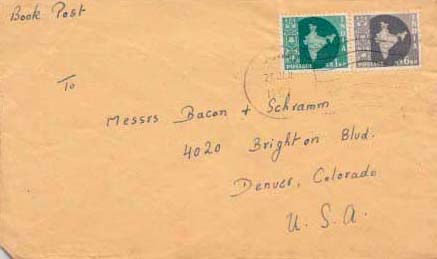 Book Post
To
Messrs Bacon + Schramm
4020 Brighton Blvd.
Denver, Colorado
U. S. A.
POSTAGE
INDIA
POSTAGE